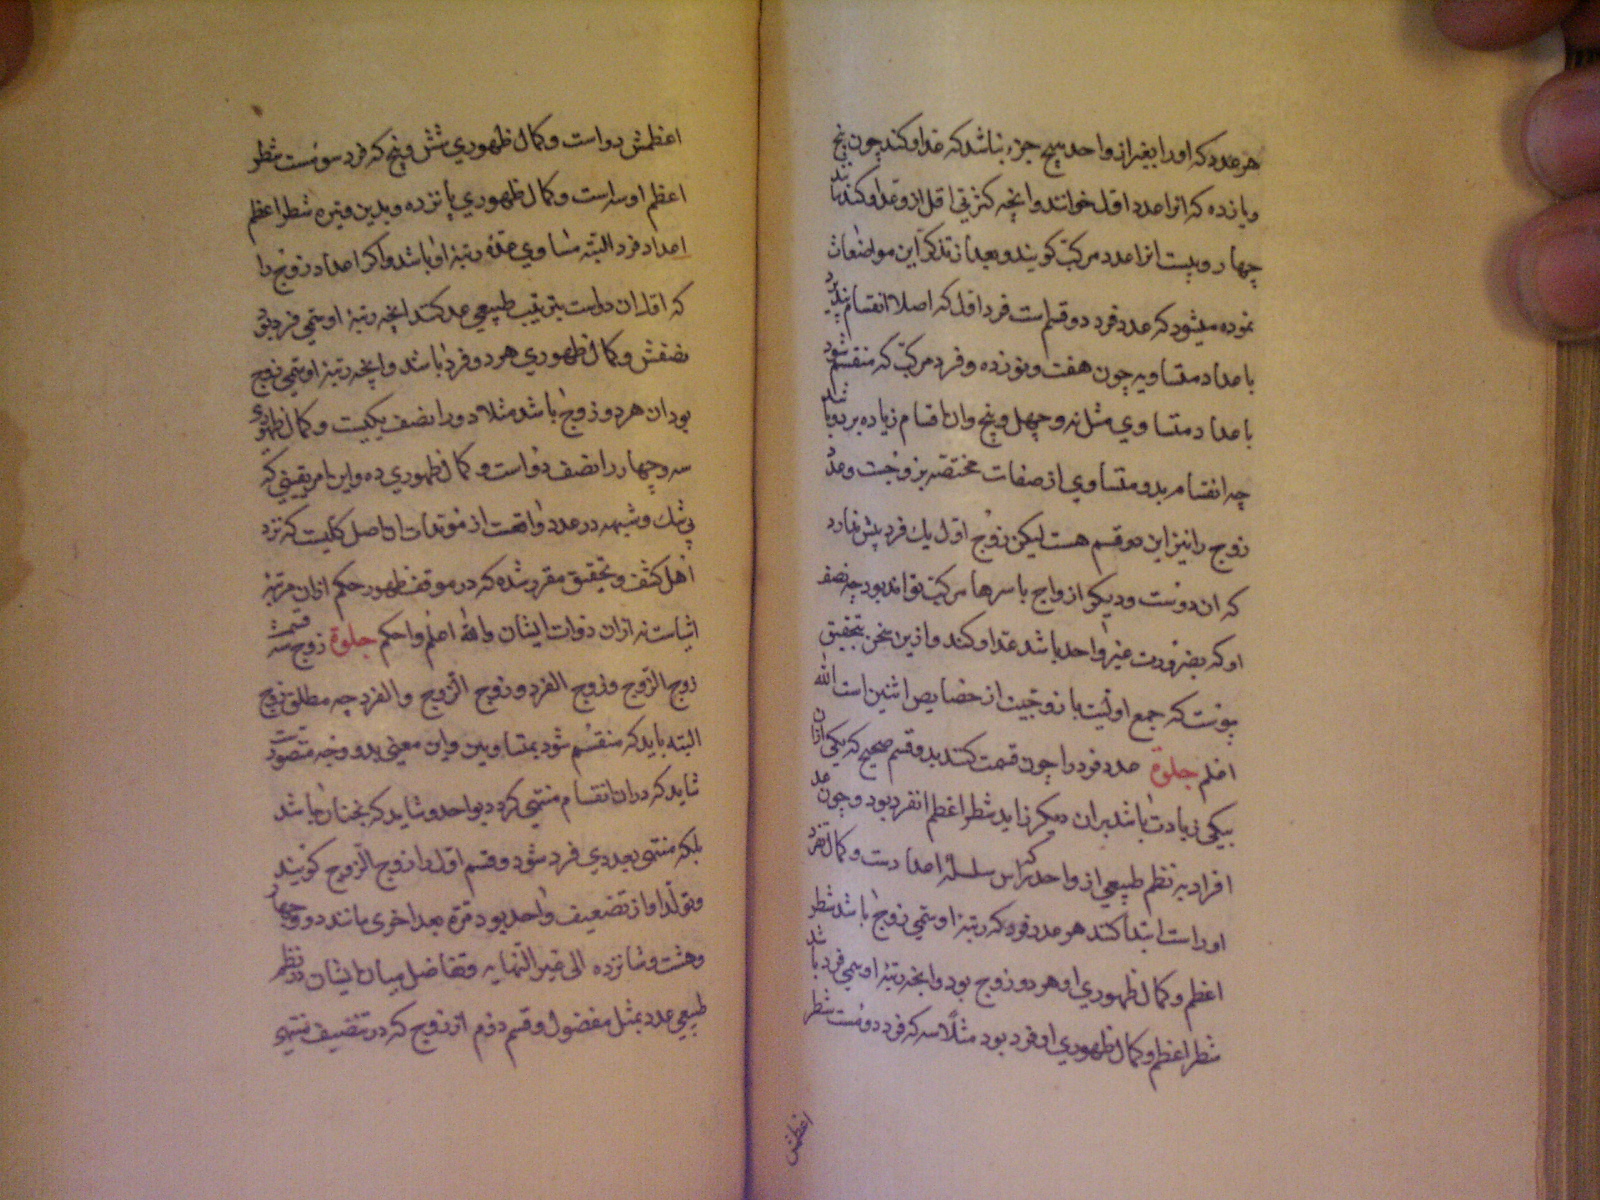 هر عدد که او را بغیر از واحد هیچ جزء نباشد که عدّ او کند چون پنج
و یازده که انرا عدد اول خوانند و انچه کثرتی اقل ازو عدّ او کند مانند
چهار و بیست انرا عدد مرکب کویند و بعد از تذکر این مواضعات
نموده میشود که عدد فرد دو قسم است فرد اول که اصلا انقسام نپذیرد
باعداد متساویه چون هفت و نوزده و فرد مرکب که منقسم شود
باعداد متساوی مثل نه و چهل و پنج و ان اقسام زیاده بر دو باشد
چه انقسام بدو متساوی از صفات مختصّه بزوجست و عدد
زوج را نیز این دو قسم هست لیکن زوج اول یک فرد بیش ندارد
که ان دوست و دیکر ازواج باسرها مرکب تواند بود چه نصف
او که بضرورت غیر واحد باشد عدّ او کند و ازین سخن بتحقیق
پیوست که جمع اولیت با زوجیت از خصایص اثنین است الله
اعلم جلوة عدد فرد را چون قسمت کنند بدو قسم صحیح که یکی ازان
بیکی زیادت باشد بران دیکر زاید شطر اعظم انفرد بود و چون عدد
افراد به نظم طبیعی از واحد کبراس سلسله اعدادست و کمال تفرد
اوراست ابتدا کنند هر عدد فرد که رتبهٔ او سمی زوج باشد شطر
اعظم و کمال ظهوری او هر دو زوج بود و انچه رتبهٔ او سمی فرد باشد
شطر اعظم و کمال ظهوری او فرد بود مثلًا سه که فرد دومست شطر
اعظمش
اعظمش دو است و کمال ظهوری شش و پنج که فرد سومست شطر
اعظم او سه است و کمال ظهوری پانزده و بدین وتیره شطر اعظم
اعداد فرد البته مساوی عدّهٔ رتبهٔ او باشد و اکر اعداد زوج را
که اقل ان دواست بترتیب طبیعی عد کنند انچه رتبهٔ او سمی فرد بود
نصفش و کمال ظهوری هر دو فرد باشد و انچه رتبهٔ او سمی زوج
بود ان هر دو زوج باشد مثلا دو را نصف یکیست و کمال ظهوری
سه و چهار را نصف دو است و کمال ظهوری ده و این امر یقینی که
بی شک و شبهه در عدد واقعست از مؤیدات ان اصل کلیست که نزد
اهل کشف و تحقیق مقرر شده که در موقف ظهور حکم ازان مرتبهٔ
اثیاست نه ازان ذوات ایشان والله اعلم و احکم جلوة زوج سه قسمست
زوج الزّوج و زوج الفرد و زوج الزّوج و الفرد چه مطلق زوج
البته باید که منقسم شود بمتساویین و این معنی بدو وجه متصورست
شاید که دران انقسام منتهی کردد بواحد و شاید که نجنان باشد
بلکه منتهی بعددی فرد شود و قسم اول را زوج الزّوج کویند
و تولّد او از تضعیف واحد بود مرّة بعد اخری مانند دو و چهار
و هشت و شانزده الی غیر النهایه و تفاضل میان ایشان در نظم
طبیعی عدد بمثل مفضول و قسم دوم از زوج که در تنصیف منتهی